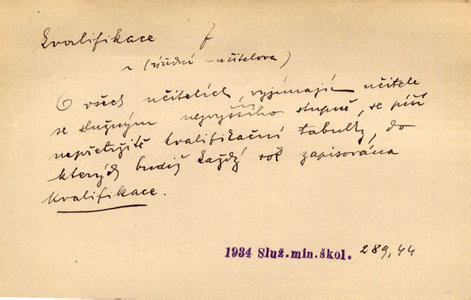 Kvalifikace f
(úřední - učitelova)
O všech učitelích, vyjímajíc učitele
se služným nejvyššího stupně, se píší
nepřetržitě kvalifikační tabulky, do
kterých budiž každý rok zapisována
kvalifikace.
1934 Služ.min.škol. 289,44